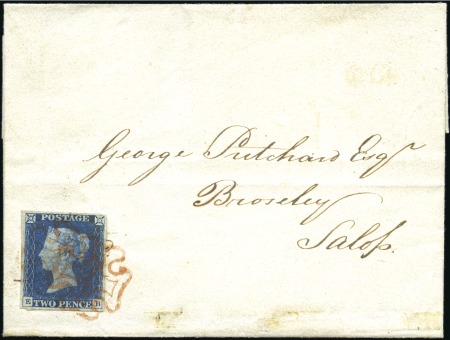 George Pritchard Esqr
Broseley
Salop.
POSTAGE
TWO PENCE